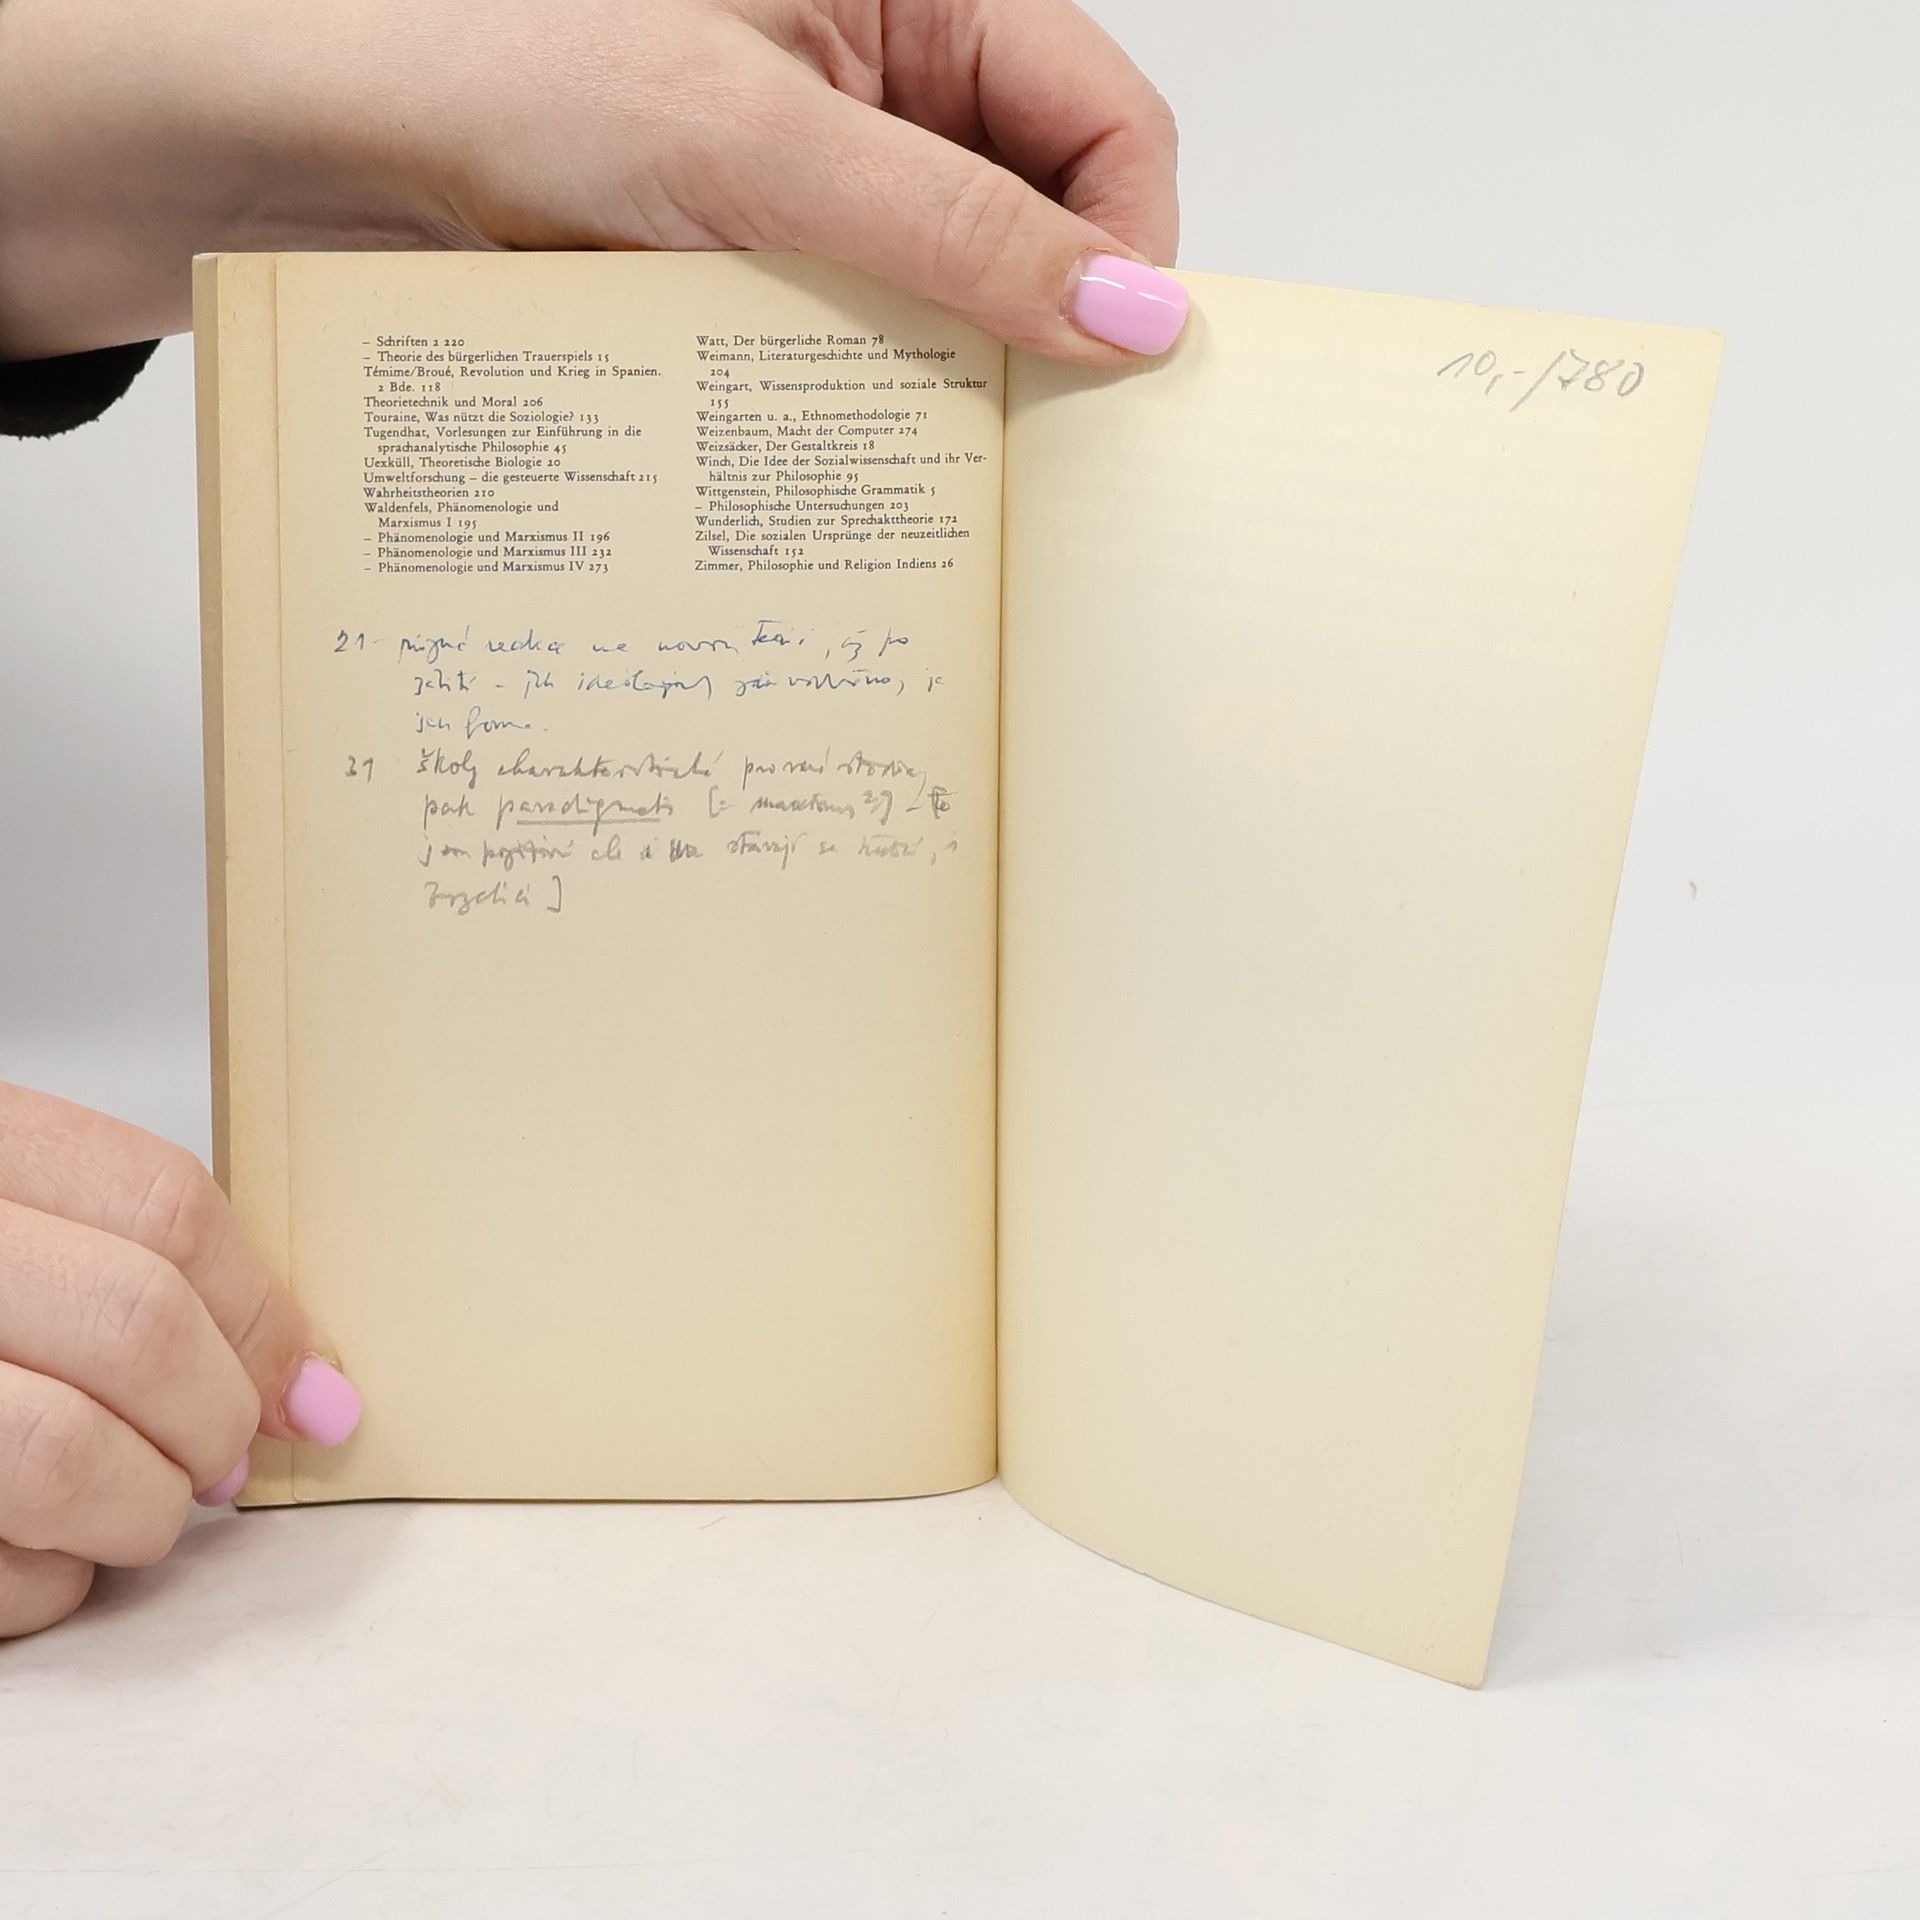 – Schriften 2 220
– Theorie des bürgerlichen Trauerspiels 15
Témime/Broué, Revolution und Krieg in Spanien.
2 Bde. 118
Theorietechnik und Moral 206
Touraine, Was nützt die Soziologie? 133
Tugendhat, Vorlesungen zur Einführung in die
sprachanalytische Philosophie 45
Uexküll, Theoretische Biologie 20
Umweltforschung – die gesteuerte Wissenschaft 215
Wahrheitstheorien 210
Waldenfels, Phänomenologie und
Marxismus I 195
– Phänomenologie und Marxismus II 196
– Phänomenologie und Marxismus III 232
– Phänomenologie und Marxismus IV 273
Watt, Der bürgerliche Roman 78
Weimann, Literaturgeschichte und Mythologie
204
Weingart, Wissensproduktion und soziale Struktur
155
Weingarten u. a., Ethnomethodologie 71
Weizenbaum, Macht der Computer 274
Weizsäcker, Der Gestaltkreis 18
Winch, Die Idee der Sozialwissenschaft und ihr Ver-
hältnis zur Philosophie 95
Wittgenstein, Philosophische Grammatik 5
– Philosophische Untersuchungen 203
Wunderlich, Studien zur Sprechakttheorie 172
Zilsel, Die sozialen Ursprünge der neuzeitlichen
Wissenschaft 152
Zimmer, Philosophie und Religion Indiens 26
21 - různé reakce na novou
je
jen forma.
31 školy charakteristické pro
pak paradigmata
stávají se
10,-/780